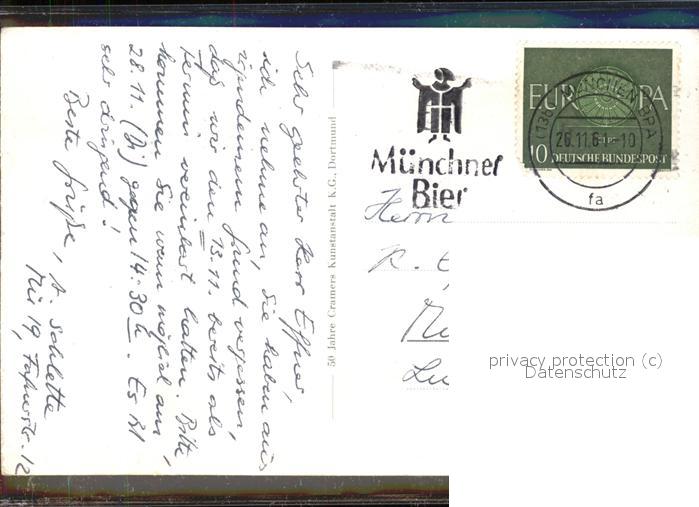 Sehr geehrter Herr Effner,
ich nehme an, Sie haben aus
irgendeinem Grund vergessen,
daß wir den 13.11. bereits als
Termin vereinbart hatten. Bitte
kommen Sie wenn möglich am
28.11. (Di) gegen 14:30h. Es ist
sehr dringend!
Beste Grüße,
Mü 19,
50 Jahre Cramers Kunstanstalt K.G., Dortmund
Münchner
Bier
EUROPA
10 DEUTSCHE BUNDESPOST
MÜNCHEN BPA
26.11.61-10
fa
Herrn
privacy protection (c)
Datenschutz